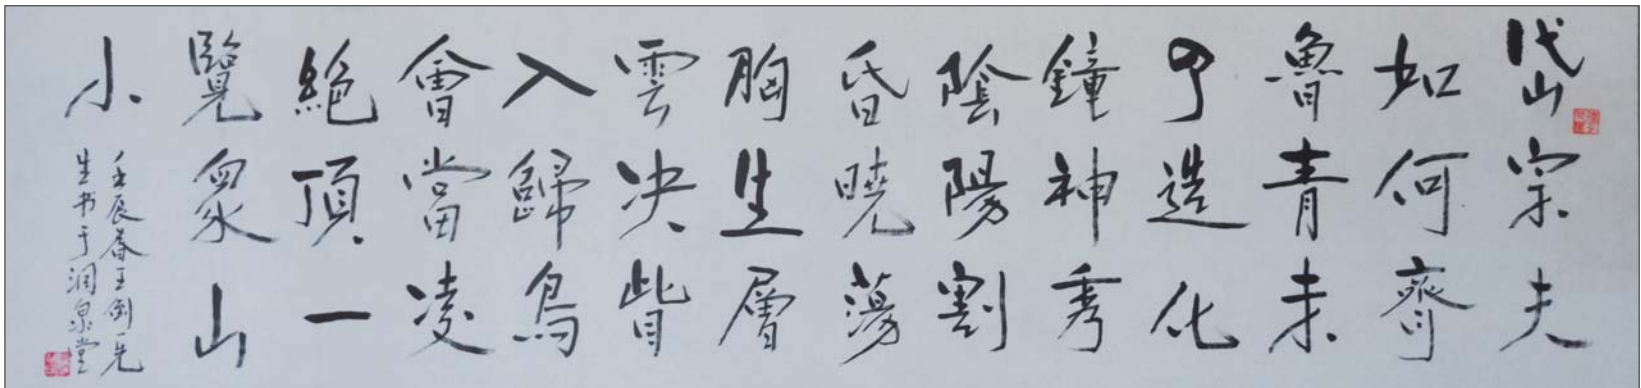 岱宗夫
如何齊
魯青未
了造化
鐘神秀
陰陽割
昏曉蕩
胸生層
雲决眥
入歸鳥
會當凌
絕頂一
覽衆山
小
壬辰春王先
生书于润泉堂